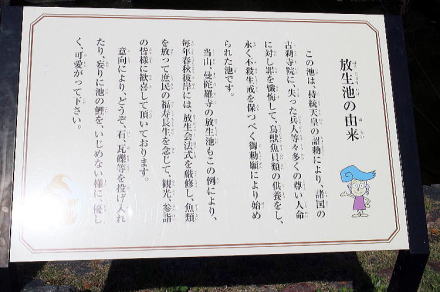 放生池の由来
この池は、持統天皇の詔勅により、諸国の
古刹寺院に、失った兵人等々多くの尊い人命
に対し罪を懺悔して、鳥獣魚貝類の供養をし、
永く不殺生戒を保つべく御勅願により始め
られた池です。
当山、曼陀羅寺の放生池もこの例により、
毎年春秋彼岸には、放生会法式を厳修し、魚類
を放って庶民の福寿長生を念じて、観光、参詣
の皆様に歓喜して頂いております。
意向により、どうぞ、石、瓦礫等を投げ入れ
たり妄りに池の鯉を、いじめない様に、優し
く、可愛がって下さい。